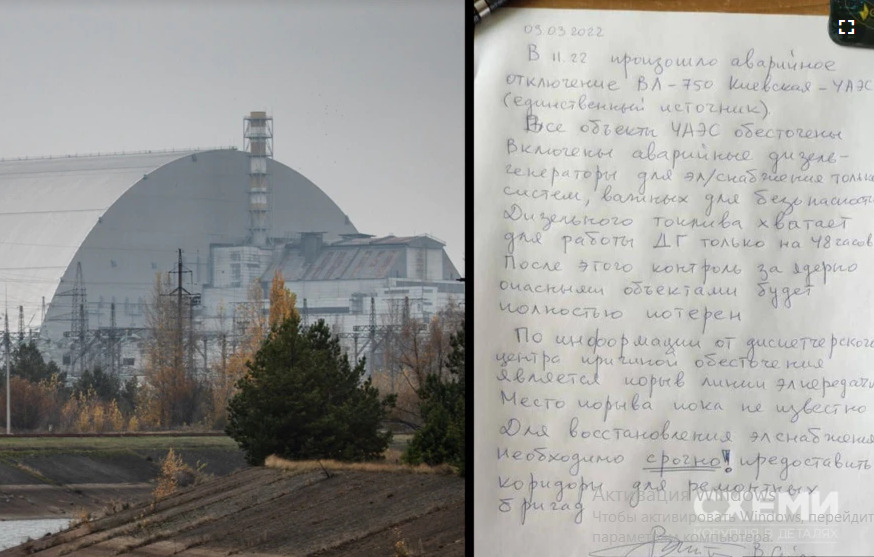 09.03.2022
В 11.22 произошло аварийное
отключение ВЛ-750 Киевская-ЧАЭС
(единственный источник)
Все объекты ЧАЭС обесточены
Включены аварийные дизель-
генераторы для эл/снабжения только
систем, важных для безопасности
Дизельного топлива хватает
для работы ДГ только на 48 часов
После этого контроль за ядерно
опасными объектами будет
полностью потерян
По информации от диспетчерского
центра причиной обесточения
является порыв линии элпередачи
Место порыва пока не известно
Для восстановления элснабжения
Необходимо срочно! предоставить
коридоры для ремонтных
бригад
Активация Windows
СХЕМИ
Чтобы активировать Windows, перейдите
параметры компьютера.